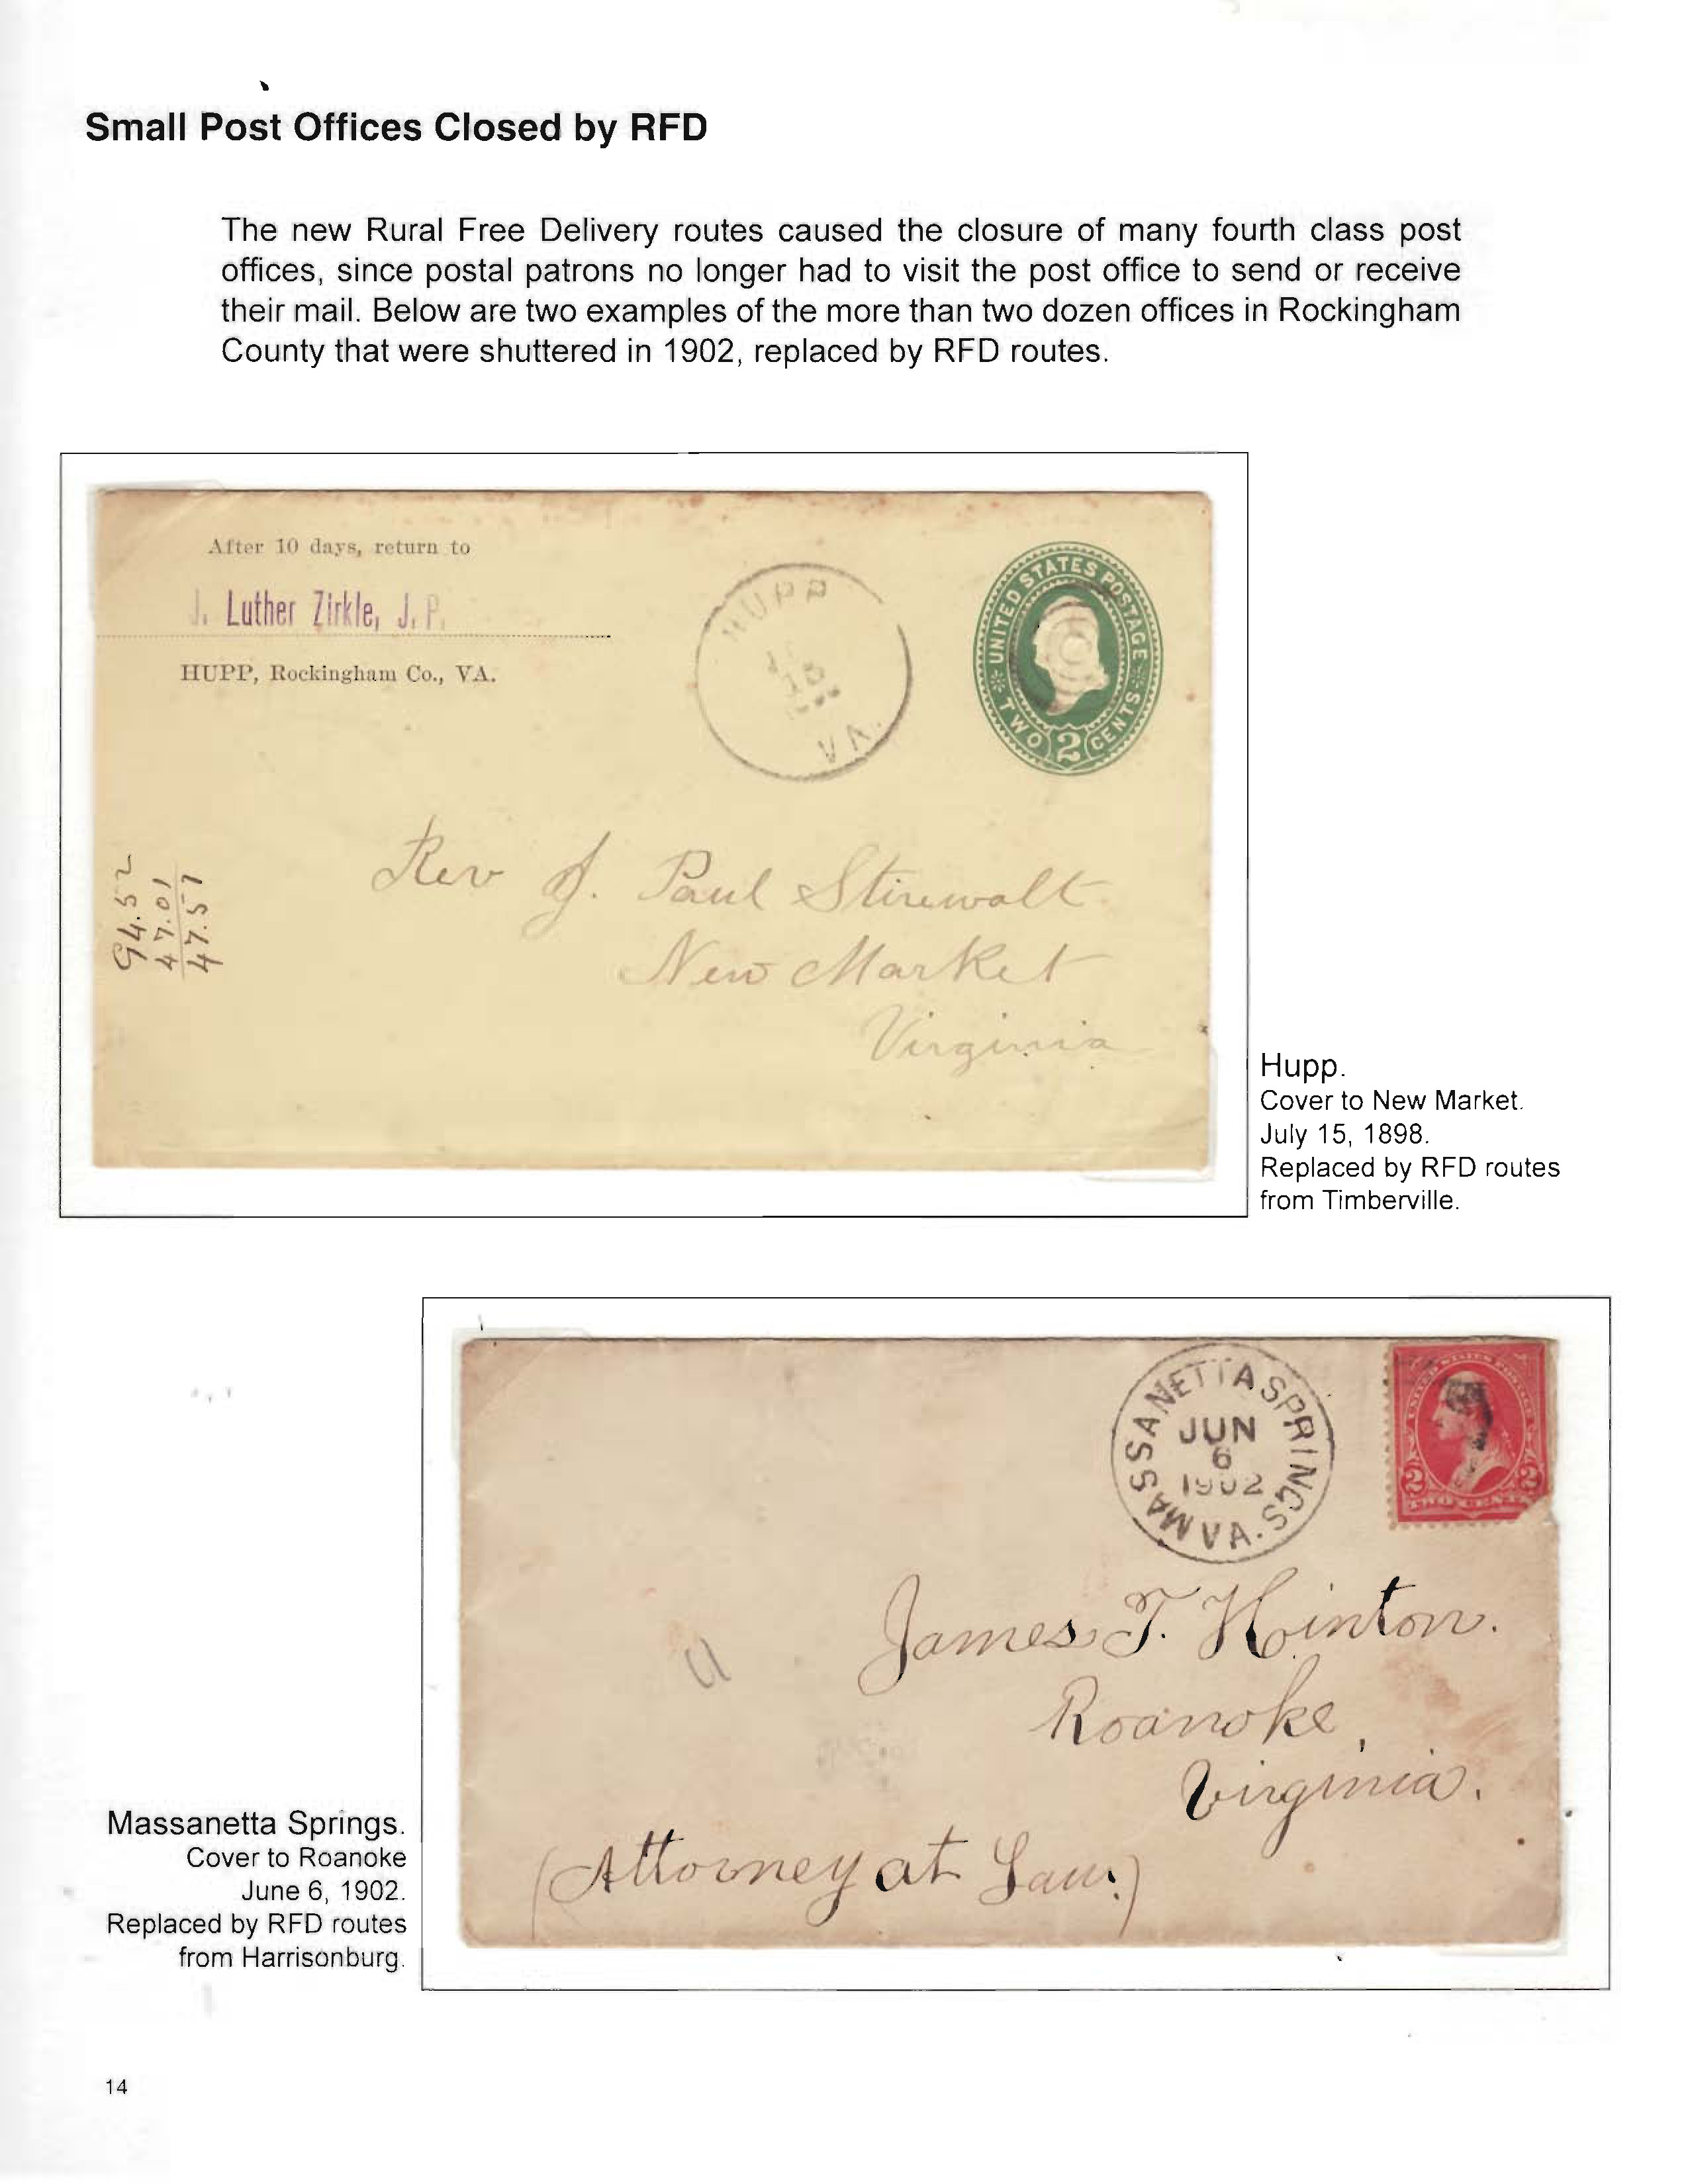 Small Post Offices Closed by RFD
The new Rural Free Delivery routes caused the closure of many fourth class post
offices, since postal patrons no longer had to visit the post office to send or receive
their mail. Below are two examples of the more than two dozen offices in Rockingham
County that were shuttered in 1902, replaced by RFD routes.
After 10 days, return to
J. Luther Zirkle, J. P.
HUPP, Rockingham Co., VA.
HUPP
15
VA.
UNITED STATES POSTAGE
TWO 2 CENTS
Rev J. Paul Stirewalt
New Market
Virginia
94.52
47.01
47.51
Hupp.
Cover to New Market.
July 15, 1898.
Replaced by RFD routes
from Timberville.
MASSANETTA SPRINGS
JUN
6
1902
VA.
UNITED STATES POSTAGE
2 2
TWO CENTS
James T. Hinton.
Roanoke,
Virginia.
(Attorney at Law.)
Massanetta Springs.
Cover to Roanoke
June 6, 1902.
Replaced by RFD routes
from Harrisonburg.
14